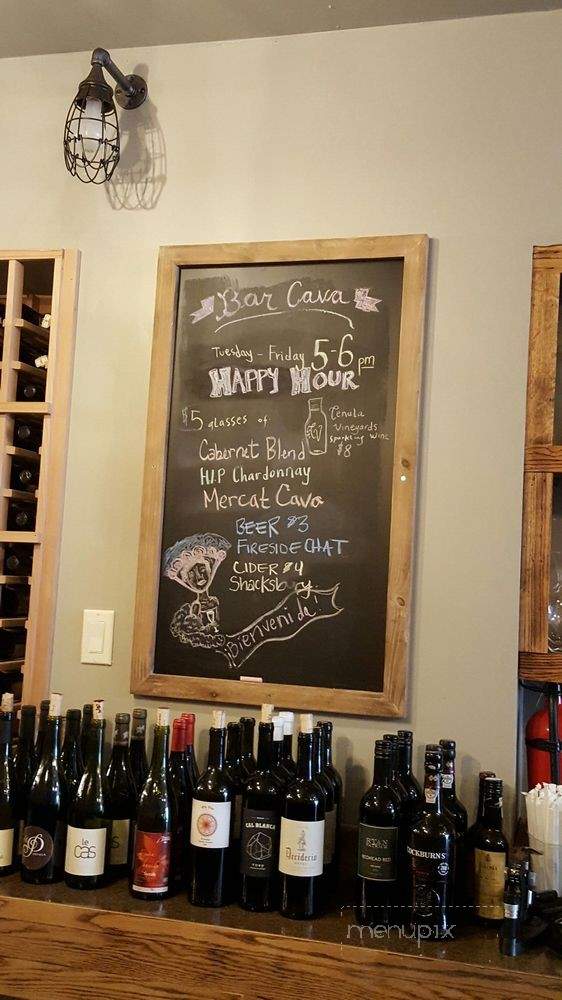 Bar Cava
Tuesday - Friday 5-6 pm
HAPPY HOUR
$5 glasses of
Tenula
Vineyards
Sparkling Wine
$8
Cabernet Blend
H.I.P Chardonnay
Mercat Cava
BEER $3
FIRESIDE CHAT
CIDER $4
Shacksbury.
¡Bienvenida!
le
CAS
CAL BLANCA
Desiderio
RYAN
REDHEAD RED
COCKBURN'S
menupix